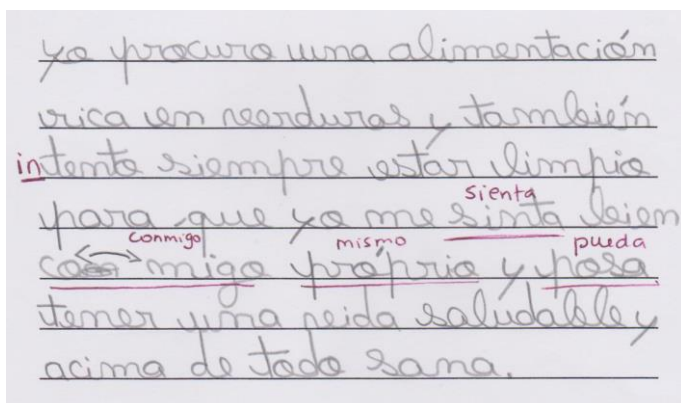 yo procuro uma alimentación
rica en verduras y también
intento siempre estár limpio
sienta
para que yo me sinta bien
conmigo mismo pueda
co migo próprio y posa
tener uma vida saludable y
acima de todo sana.